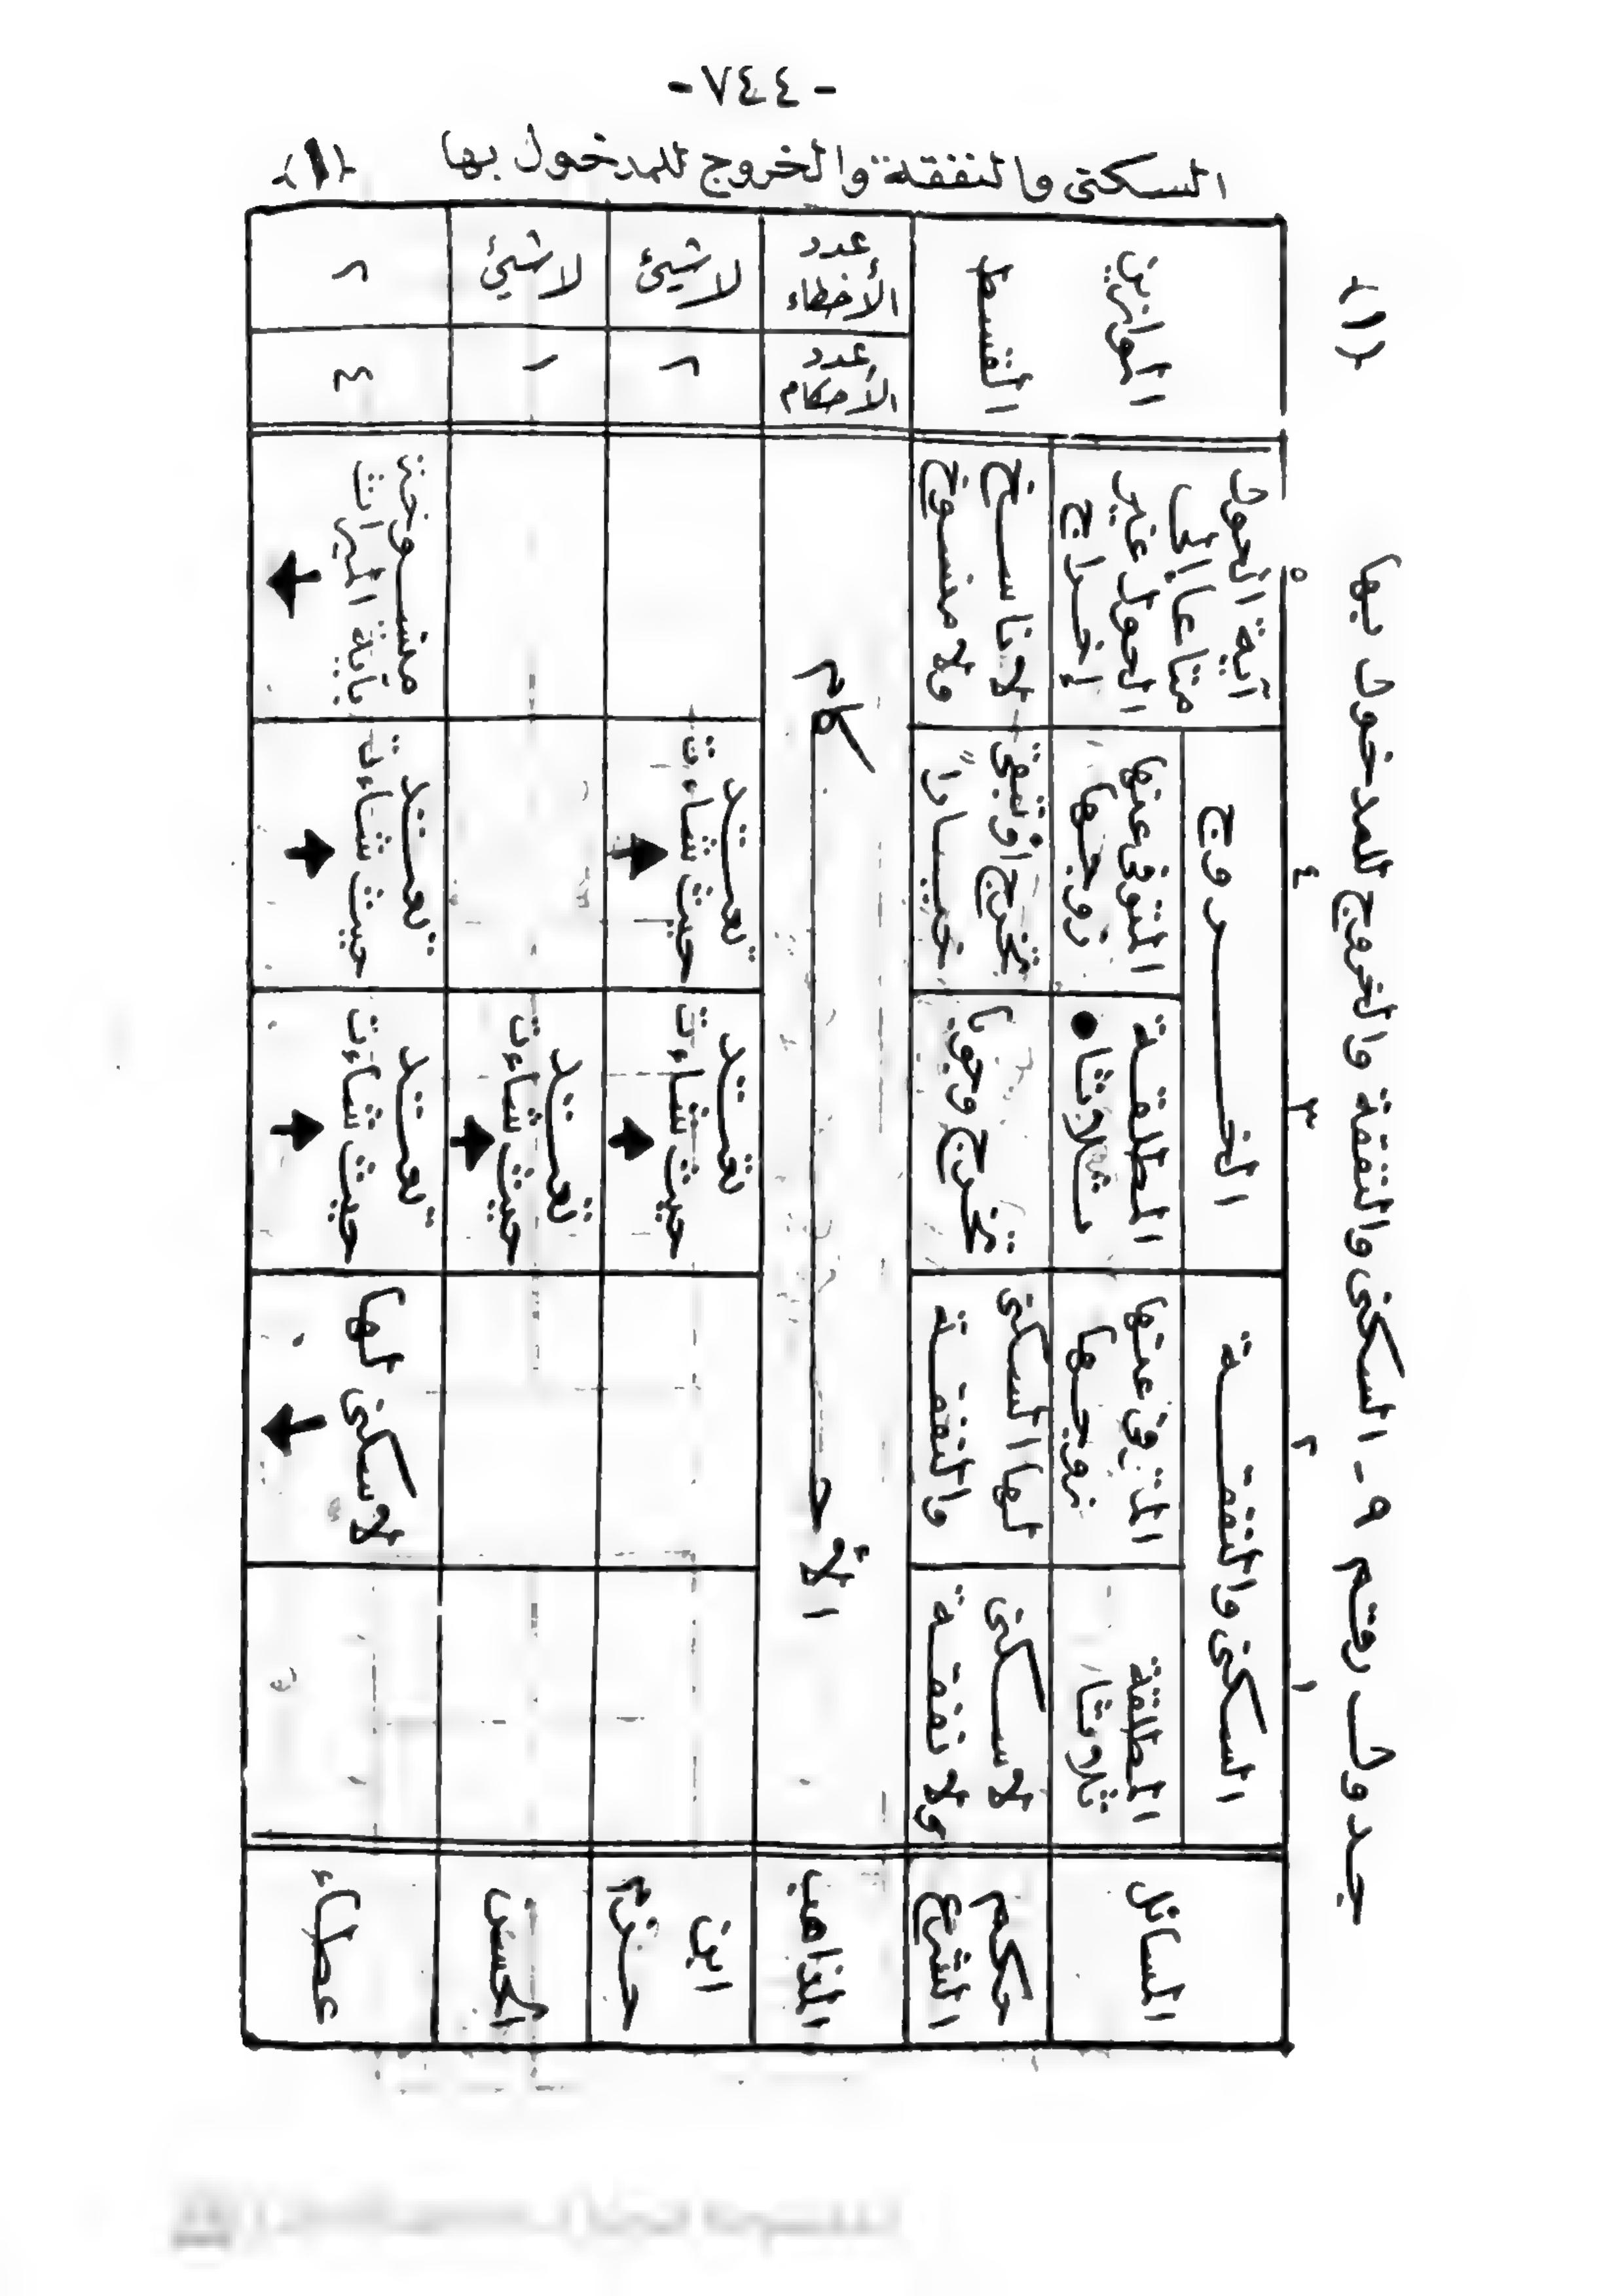 -٧٤٤-
السكنى والنفقة والخروج للمدخول بها {١}
جدول رقم ٩- السكنى والنفقة والخروج للمدخول بها {١}
١ ٢ ٣ ٤ ٥
المسائل
السكنى والنفقـــة
الخـــروج
المطلقة
ثلاثا
المتوفى عنها
زوجها
المطلقـة
ثلاثا
المتوفى عنها
زوجها
آية الحول
متاعا إلى
الحول غير
إخراج
الموازين
القسط
حكم
الشرع
لا سكنى
ولا نفقـة
لها السكنى
والنفقـة
تخرج وجوبا
تخرج أو تبقى
خيارا
لا ناسخ
ولا منسوخ
المذاهب
الأحـــكام
عدد
الأحكام
عدد
الأخطاء
ابن
حزم
تعتد
حيث شاءت
تعتد
حيث شاءت
٢
لا شيئ
الحسن
تعتد
حيث شاءت
١
لا شيئ
عطاء
لا سكنى لها
تعتد
حيث شاءت
تعتد
حيث شاءت
منسوخة
بآية الميراث
٤
٢